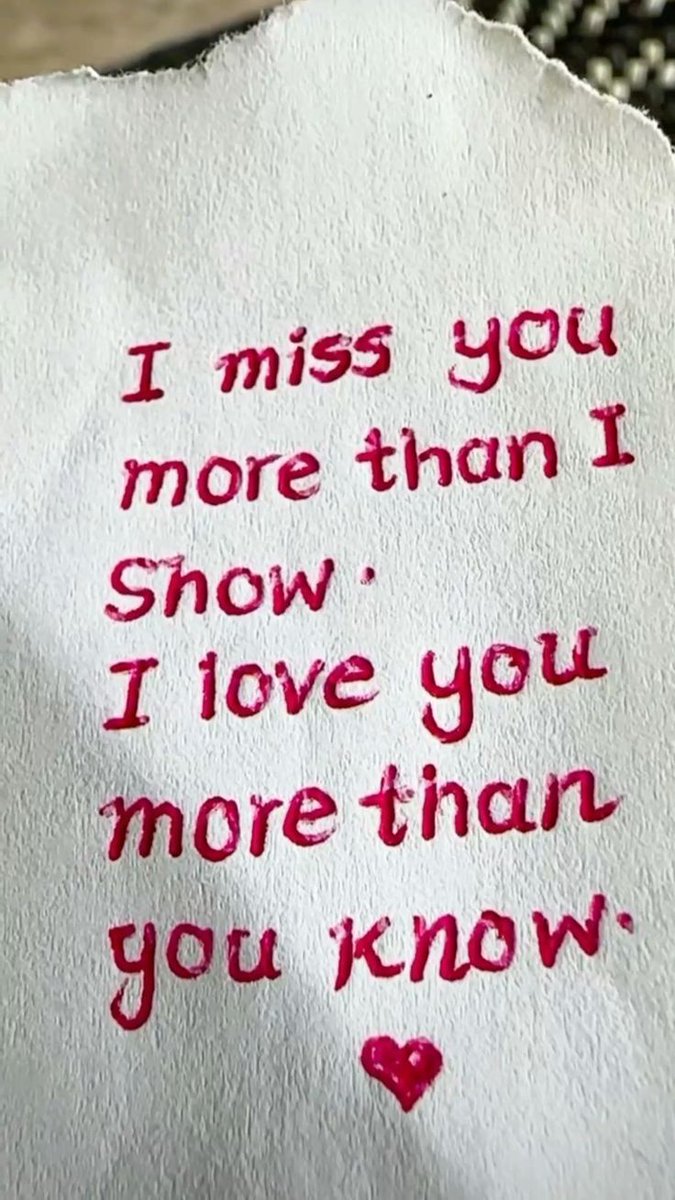 I miss you
more than I
Show.
I love you
more than
you know.